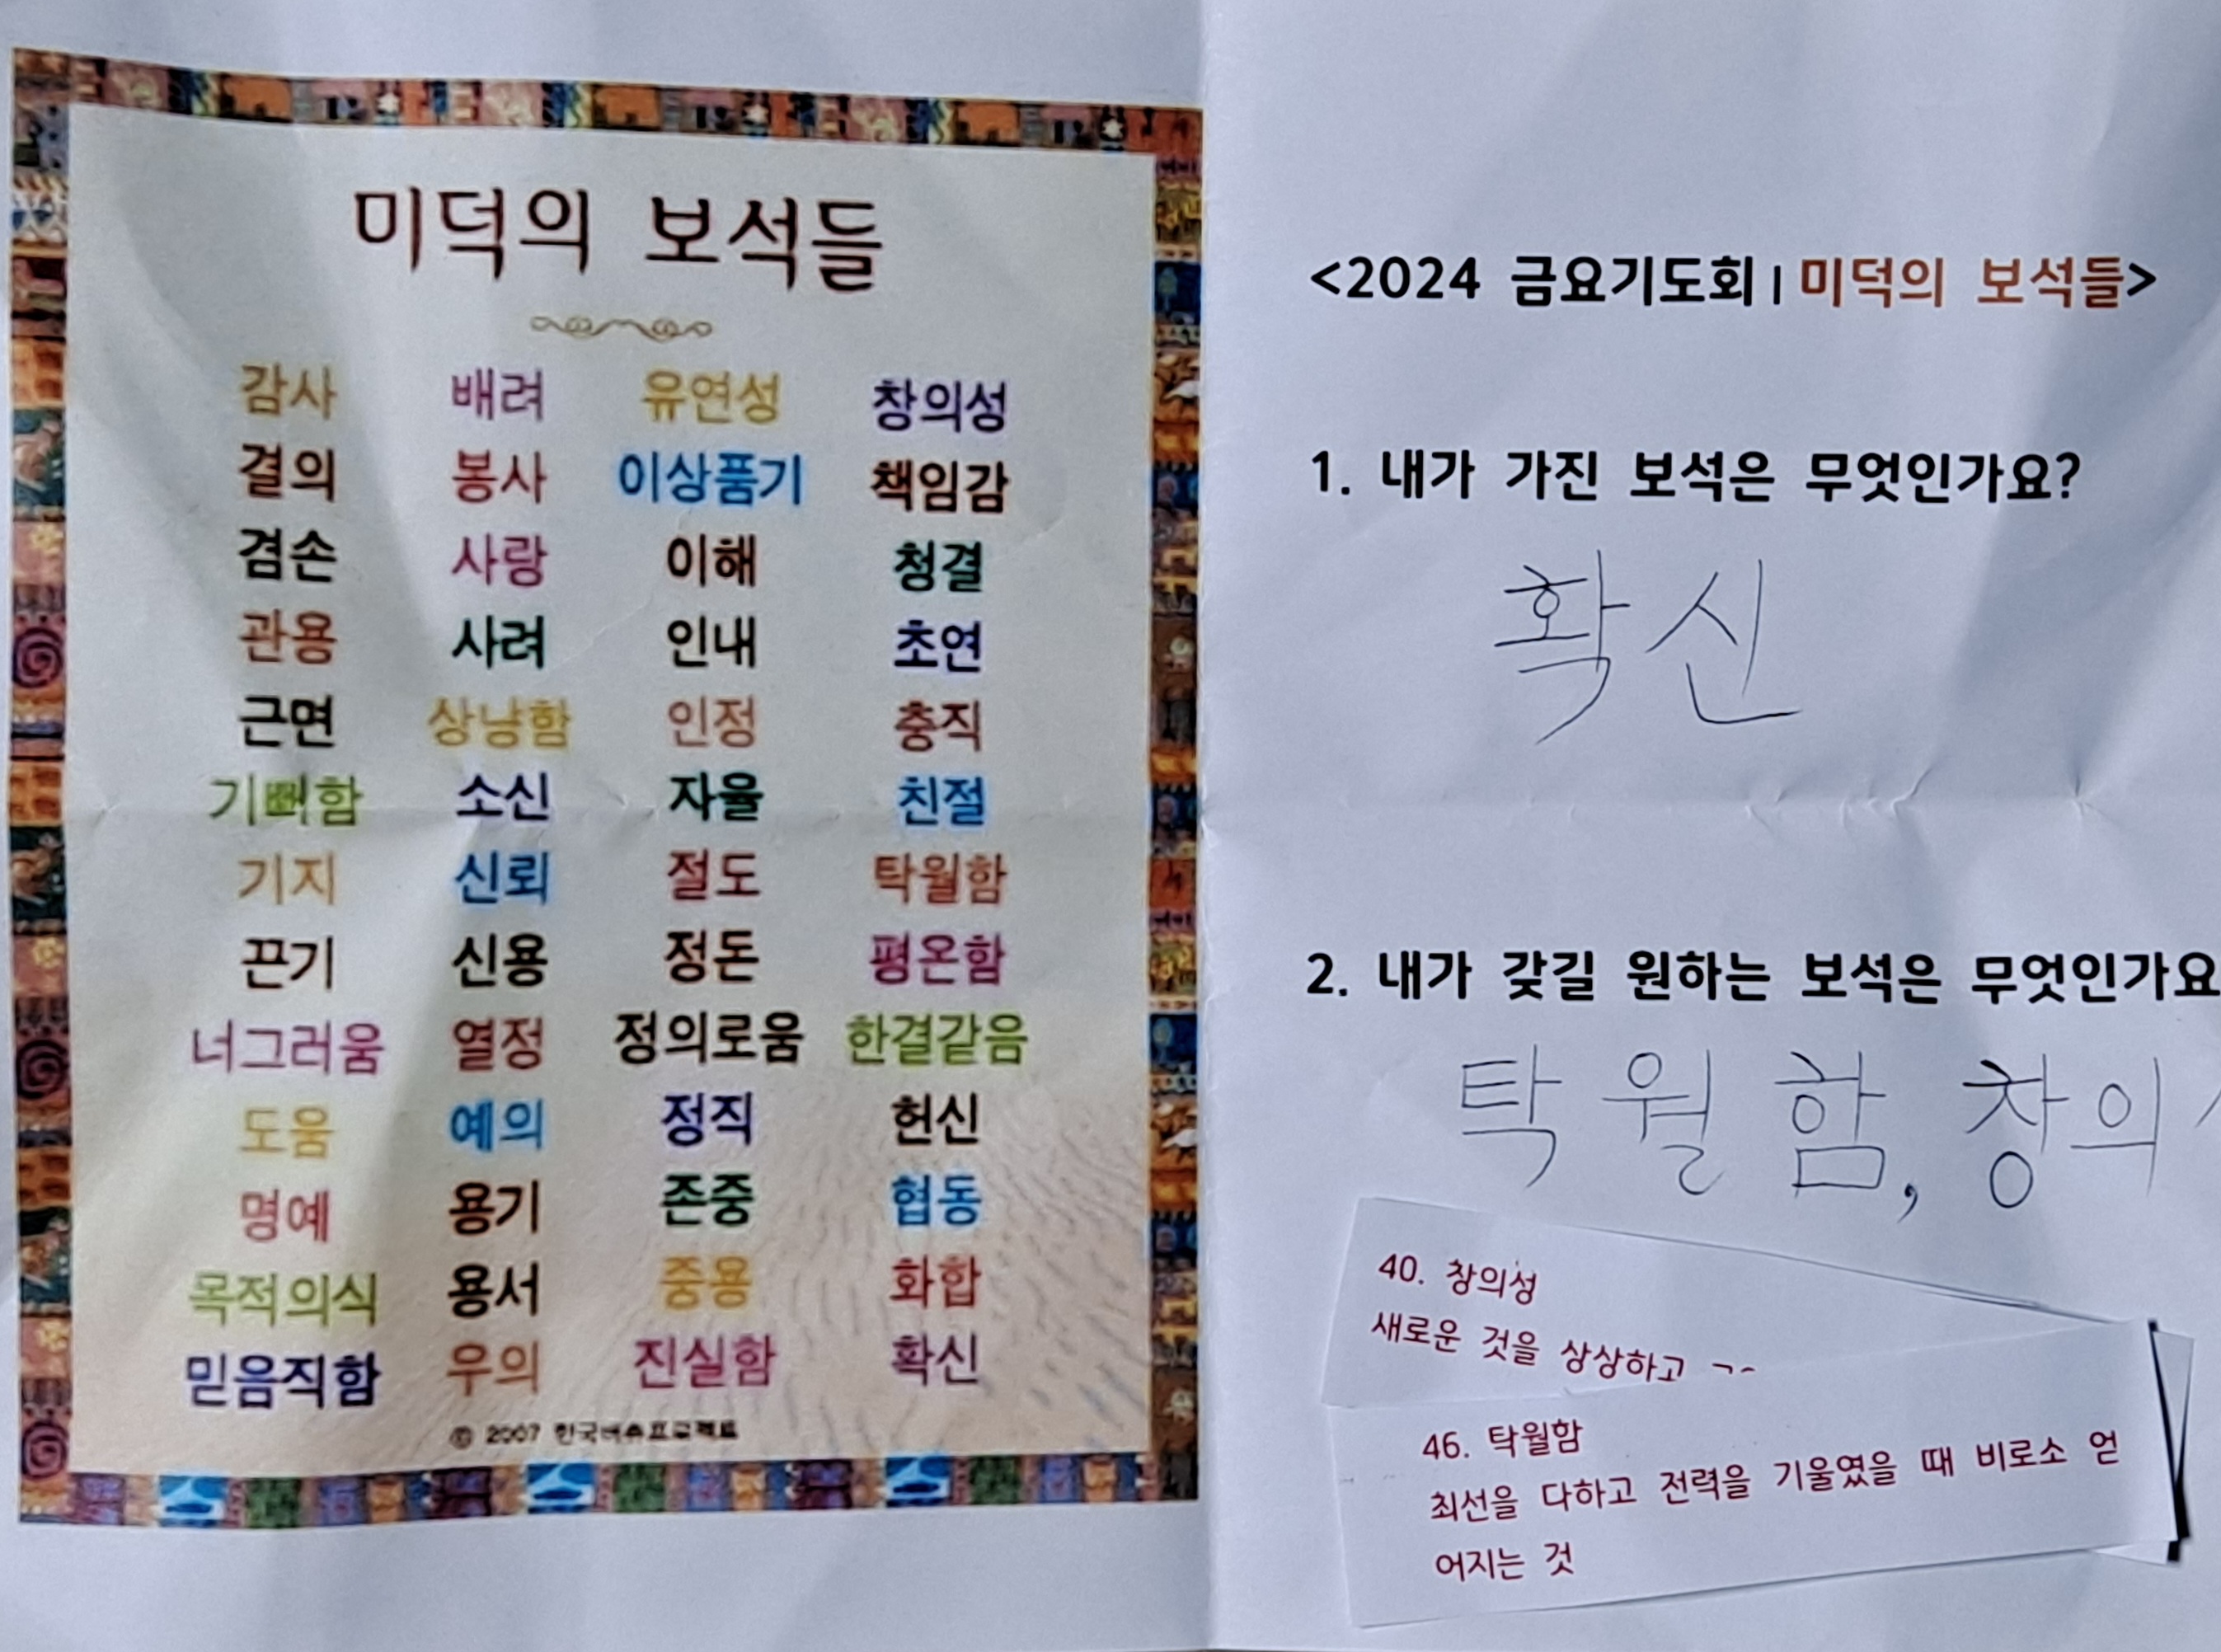 미덕의 보석들
감사 배려 유연성 창의성
결의 봉사 이상품기 책임감
겸손 사랑 이해 청결
관용 사려 인내 초연
근면 상냥함 인정 충직
기뻐함 소신 자율 친절
기지 신뢰 절도 탁월함
끈기 신용 정돈 평온함
너그러움 열정 정의로움 한결같음
도움 예의 정직 헌신
명예 용기 존중 협동
목적의식 용서 중용 화합
믿음직함 우의 진실함 확신
© 2007 한국버츄프로젝트
<2024 금요기도회 | 미덕의 보석들>
1. 내가 가진 보석은 무엇인가요?
확신
2. 내가 갖길 원하는 보석은 무엇인가요
탁월함, 창의
40. 창의성
새로운 것을 상상하고
46. 탁월함
최선을 다하고 전력을 기울였을 때 비로소 얻
어지는 것